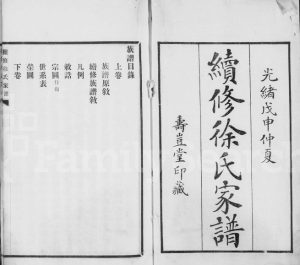 光緒戊申仲夏
續修徐氏家譜
壽豈堂印藏
族譜目錄
上卷
族譜原敘
續修族譜敘
凡例
敕誥
宗圖
世系表
榮圖
下卷